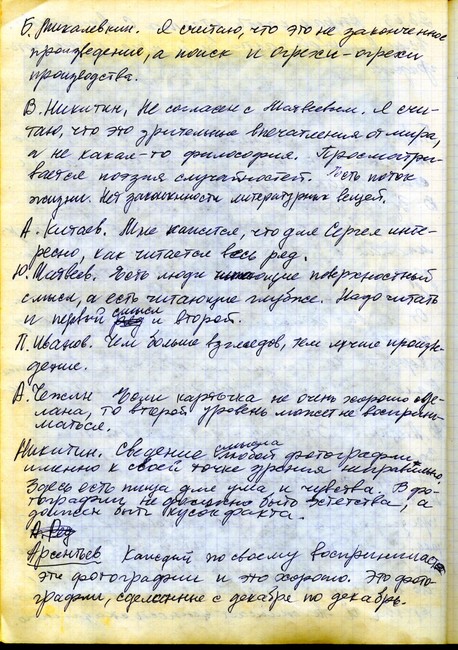 Б. Михалевкин. Я считаю, что это не законченное
произведение, а поиск и огрехи-огрехи
производства.
В. Никитин. Не согласен с Матвеевым. Я счи-
таю, что это зрительные впечатления от мира,
а не какая-то философия. Просматри-
вается поэзия случайностей. Есть поток
жизни. Нет законченности литературных вещей.
А. Китаев. Мне кажется, что для Сергея инте-
ресно, как читается весь ряд.
Ю. Матвеев. Есть люди читающие поверхностный
смысл, а есть читающие глубже. Надо читать
и первый смысл и второй.
П. Иванов. Чем больше взглядов, тем лучше произве-
дение.
А. Чежин Если карточка не очень хорошо сде-
лана, то второй уровень может не восприни-
маться.
Никитин. Сведение смысла любой фотографии
именно к своей точке зрения неправильно.
Здесь есть пища для ума и чувства. В фо-
тографии не должно быть эстетства, а
должен быть кусок факта.
Арсентьев Каждый по своему воспринимает
эти фотографии и это хорошо. Это фото-
графии, сделанные с декабря по декабрь.